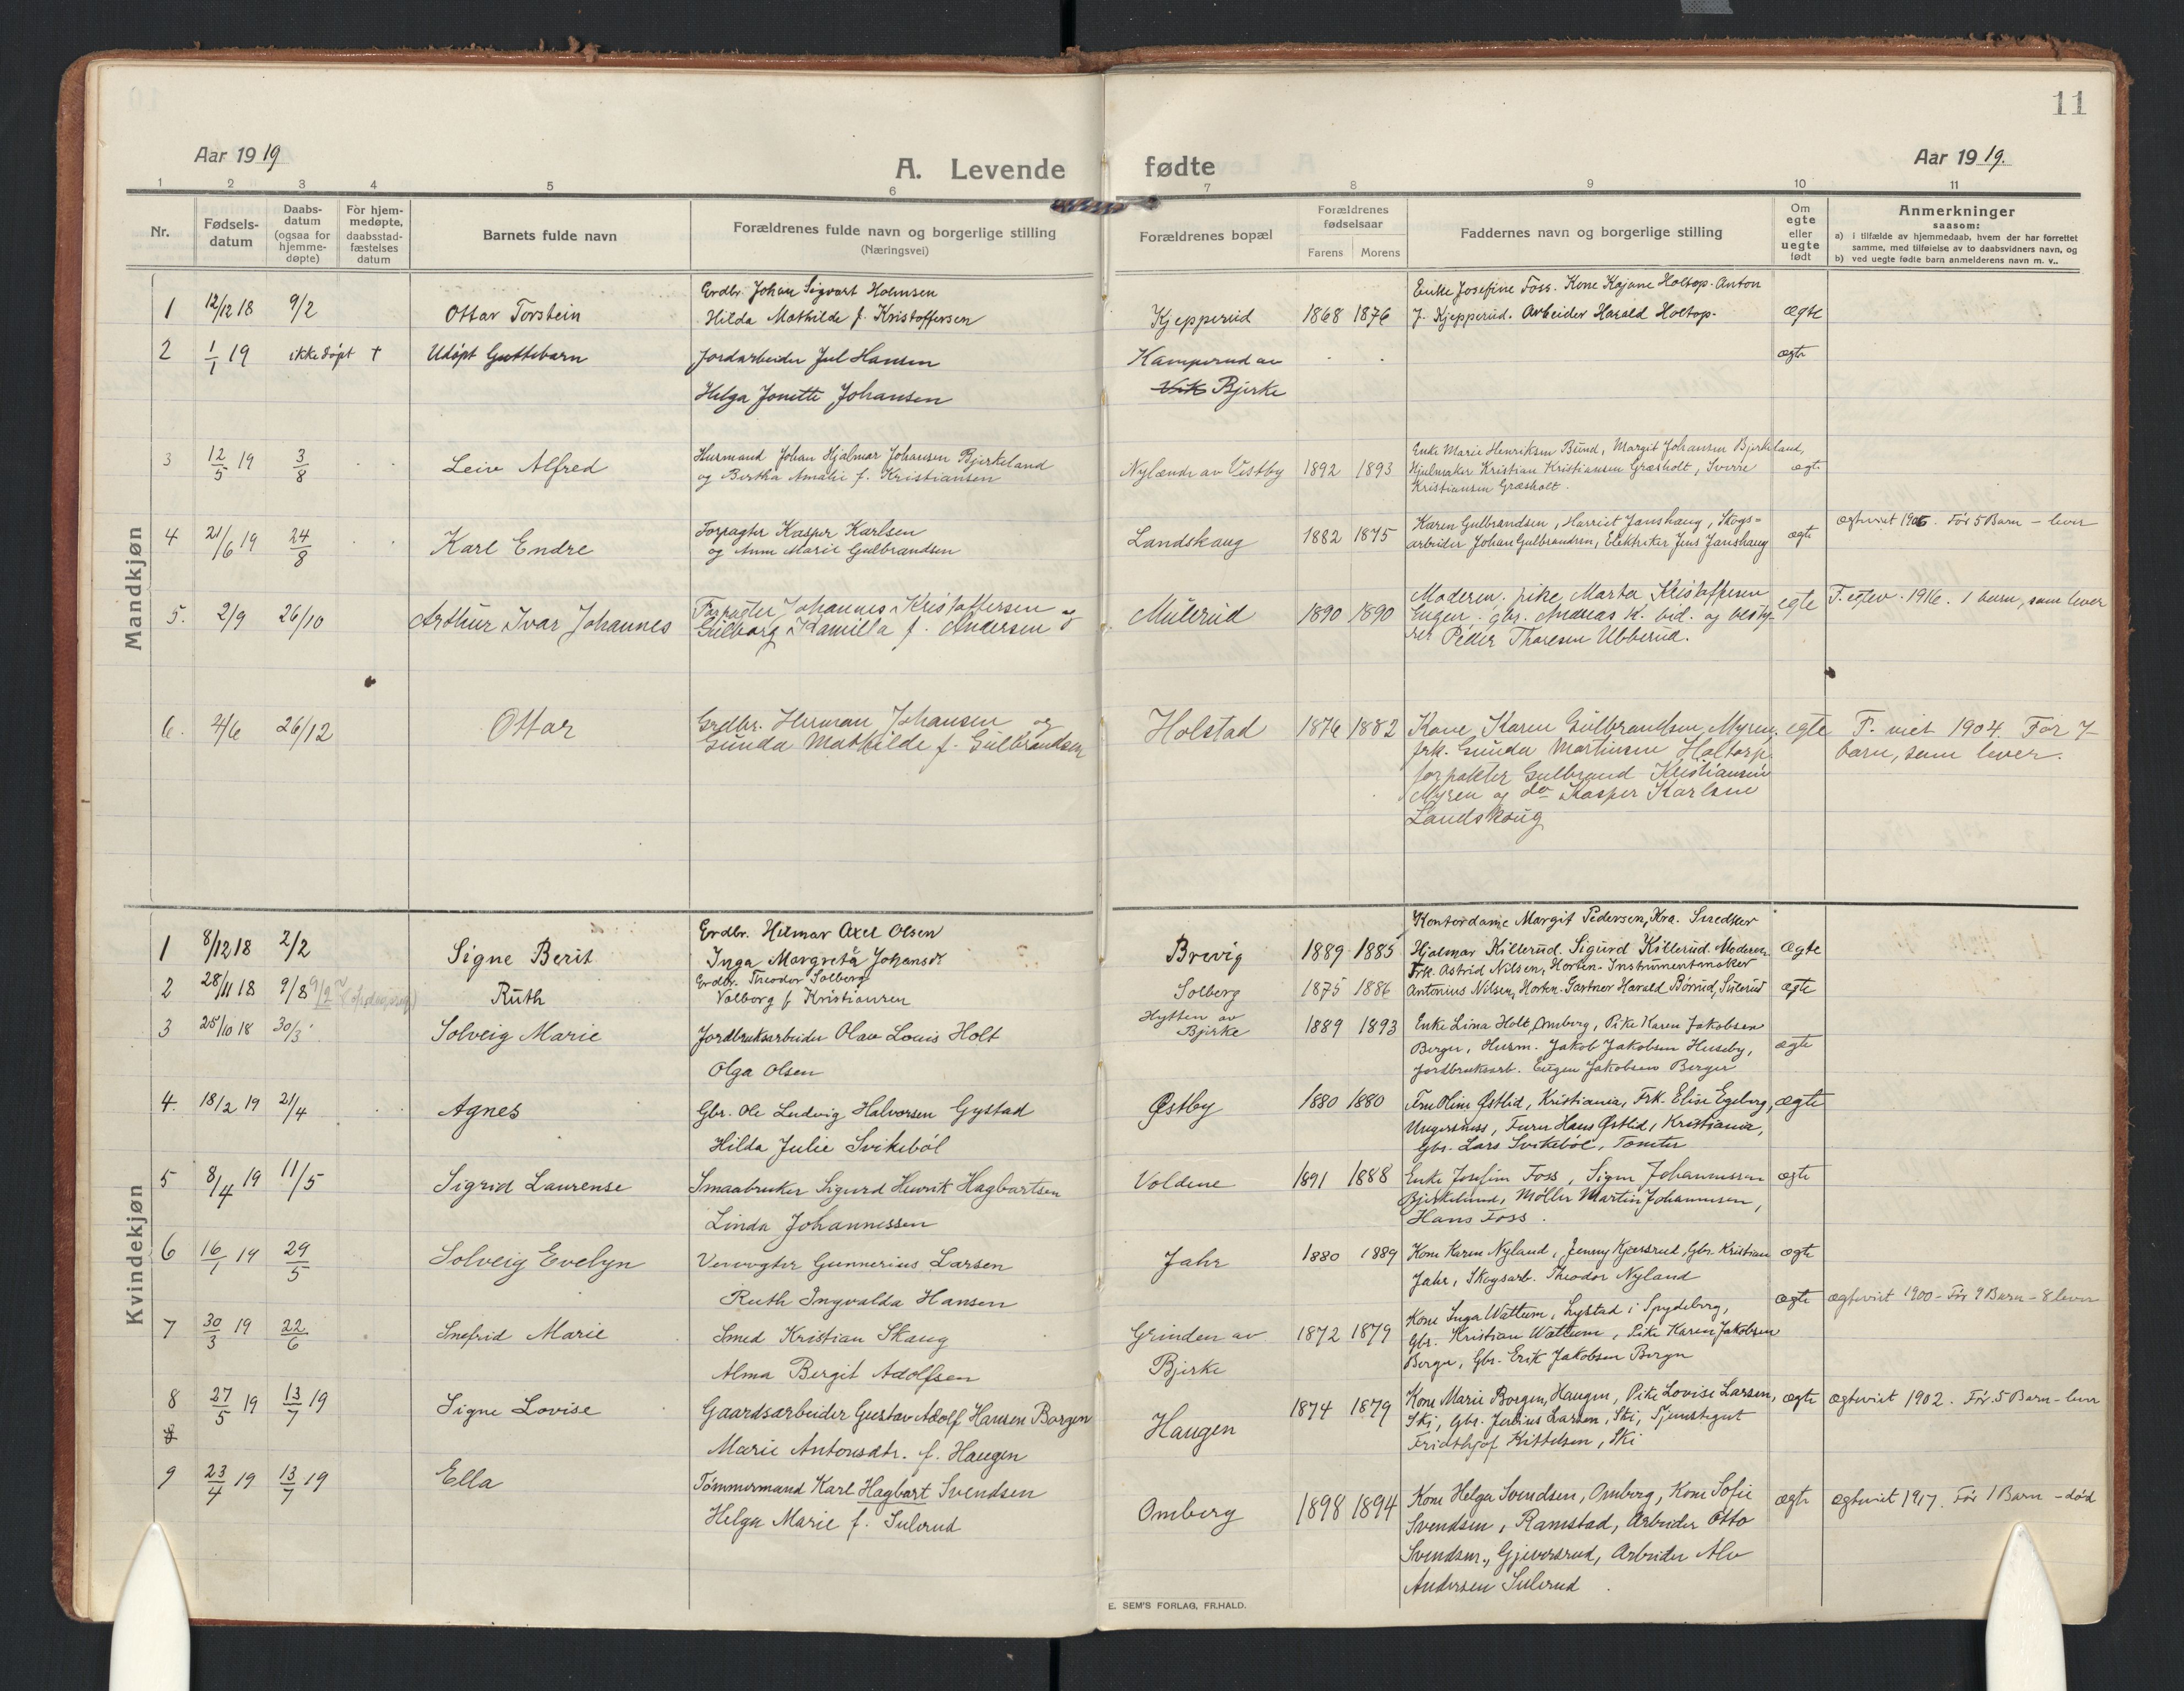 11
Aar 1919
A. Levende fødte
Aar 1919.
1 2 3 4 5 6 7 8 9 10 11
Nr.
Fødsels-
datum
Daabs-
datum
(ogsaa for
hjemme-
døpte)
For hjem-
medøpte,
daabsstad-
fæstelses
datum
Barnets fulde navn
Forældrenes fulde navn og borgerlige stilling
(Næringsvei)
Forældrenes bopæl
Forældrenes
fødselsaar
Farens Morens
Faddernes navn og borgerlige stilling
Om
egte
eller
uegte
født
Anmerkninger
saasom:
a) i tilfælde av hjemmedaab, hvem der har forrettet
samme, med tilføielse av to daabsvidners navn, og
b) ved uegte fødte barn anmelderens navn m. v..
Mandkjøn
1 12/12 18 9/2 Ottar Torstein
Grdbr. Johan Sigvart Holmsen
Hilda Mathilde f. Kristoffersen
Kjepperud 1868 1876
Enke Josefine Foss. Kone Kajane Holtop. Anton
J. Kjepperud. Arbeider Harald Holtop.
ægte
2 1/1 19 ikke døpt + Udøpt Guttebarn
Jordarbeider Jul Hansen
Helga Jonette Johansen
Kamperud av
Vik Bjerke
ægte
3 12/5 19 3/8 Leiv Alfred
Husmand Johan Hjalmar Johansen Bjerkeland
og Bertha Amalie f. Kristiansen
Nylænde av Vestby 1892 1893
Enke Marie Henriksen Bund, Margit Johansen Bjerkeland,
Hjulmaker Kristian Kristiansen Græsholt, Sverre
Kristiansen Græsholt.
ægte
4 21/6 19 24/8 Karl Endre
Forpagter Kasper Karlsen
og Anna Marie Gulbrandsen
Landskaug 1882 1875
Karen Gulbrandsen, Harriet Janshaug, Skogs=
arbeider Johan Gulbrandsen, Elektriker Jens Janshaug
ægte
ægteviet 1906. Før 5 Barn - lever
5. 2/9 26/10 Arthur Ivar Johannes
Forpagter Johannes Kristoffersen og
Gulborg Kamilla f. Andersen
Mulerud 1890 1890
Moderen. pike Marta Kristoffersen
Eugen. gbr. Andreas K. bid. og besty-
rer Peder Thoresen Ubberud.
egte
F. egtev. 1916. 1 barn, som lever
6. 4/6 26/12 Ottar
Grdbr. Herman Johansen og
Gunda Mathilde f. Gulbrandsen
Holstad 1876 1882
Kone Karen Gulbrandsen Myren,
frk. Gunda Martinsen Holtorp
forpakter Gulbrand Kristiansen
Myren og do Kasper Karlsen
Landskoug
egte
F. viet 1904. Før 7
barn, som lever.
Kvindekjøn
1 8/12 18 2/2 Signe Berit
Grdbr. Hilmar Axel Olsen
Inga Margreta Johansdr
Brevig 1889 1885
Kontordame Margit Pedersen, Kra. Snedker
Hjalmar Killerud. Sigurd Killerud. Moderen
ægte
2 28/11 18 9/8 9/2 Ruth
Grdbr. Theodor Solberg
Valborg f Kristiansen
Solberg 1875 1886
Frk. Astrid Nilsen, Horten. Instrumentmaker
Antonius Nilsen, Horten. Gartner Harald Børrud, Sulerud
ægte
3 25/10 18 30/3 Solveig Marie
Jordbruksarbeider Olav Louis Holt
Olga Olsen
Hytten av
Bjerke 1889 1893
Enke Lina Holt, Omberg, Pike Karen Jakobsen
Berger, Husm. Jakob Jakobsen Huseby,
Jordbruksarb. Eugen Jakobsen Berger
ægte
4. 18/2 19 21/4 Agnes
Gbr. Ole Ludvig Halvorsen Gystad
Hilda Julie Svikebøl
Østby 1880 1880
Fru Oline Østlid, Kristiania, Frk. Elise Egeberg,
Ungersness, Furer Hans Østlid, Kristiania,
Gbr. Lars Svikebøl, Tomter
ægte
5 8/4 19 11/5 Sigrid Laurense
Smaabruker Sigurd Henrik Hagbartsen
Linda Johannessen
Voldene 1891 1888
Enke Josefine Foss, Signe Johannessen
Bjerkelund, Møller Martin Johannesen,
Hans Foss.
ægte
6 16/1 19 29/5 Solveig Evelyn
Veivogter Gunnerius Larsen
Ruth Ingvalda Hansen
Jahr 1880 1889
Kone Karen Nyland, Jenny Kjærsrud, Gbr. Kristian
Jahr, Skogsarb. Theodor Nyland
ægte
7 30/3 19 22/6 Snefrid Marie
Smed Kristian Skaug
Alma Bergit Adolfsen
Grinden av
Bjerke 1872 1879
Kone Inga Wattum, Lystad i Spydeberg,
Gbr. Kristian Wattum, Pike Karen Jakobsen
Berger, Gbr. Erik Jakobsen Berger
ægte
ægteviet 1900 - Før 9 Barn - 8 lever
8 27/5 19 13/7 19 Signe Lovise
Gaardsarbeider Gustav Adolf Hansen Borgen
Marie Antonsdtr. f. Haugen
Haugen 1874 1879
Kone Marie Borgen, Haugen, Pike Lovise Larsen,
Ski, Gbr. Julius Larsen, Ski, Tjenstegut
Fridthjof Kittelsen, Ski
ægte
ægteviet 1902. Før 5 Barn - lever
9 23/4 19 13/7 19 Ella
Tømmermand Karl Hagbart Svendsen
Helga Marie f. Sulerud
Omberg 1898 1894
Kone Helga Svendsen, Omberg, Kone Sofie
Svendsen, Ramstad, Arbeider Otto
Svendsen, Gjeversrud, Arbeider Alv
Andersen Sulerud.
ægte
ægteviet 1917. Før 1 Barn - død
E. SEM'S FORLAG, FR.HALD.